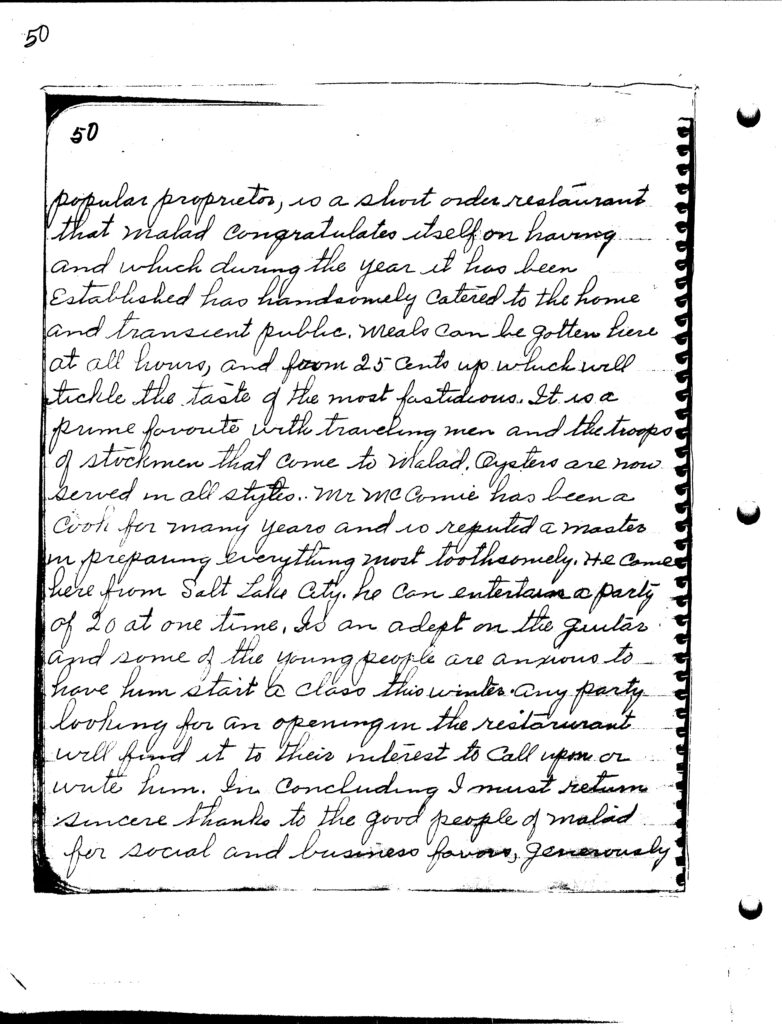 50
50
popular proprietor, is a short order restaurant
that Malad congratulates itself on having
and which during the year it has been
Established has handsomely catered to the home
and transient public. Meals can be gotten here
at all hours, and from 25 cents up which will
tickle the taste of the most fastidious. It is a
prime favorite with traveling men and the troops
of stockmen that come to Malad. Oysters are now
served in all styles. Mr McComie has been a
cook for many years and is reputed a master
in preparing everything most toothsomely. He came
here from Salt Lake City. he can entertain a party
of 20 at one time. Is an adept on the guitar
and some of the young people are anxious to
have him start a class this winter. any party
looking for an opening in the restaraurant
will find it to their interest to call upon or
write him. In concluding I must return
sincere thanks to the good people of Malad
for social and business favors, generously